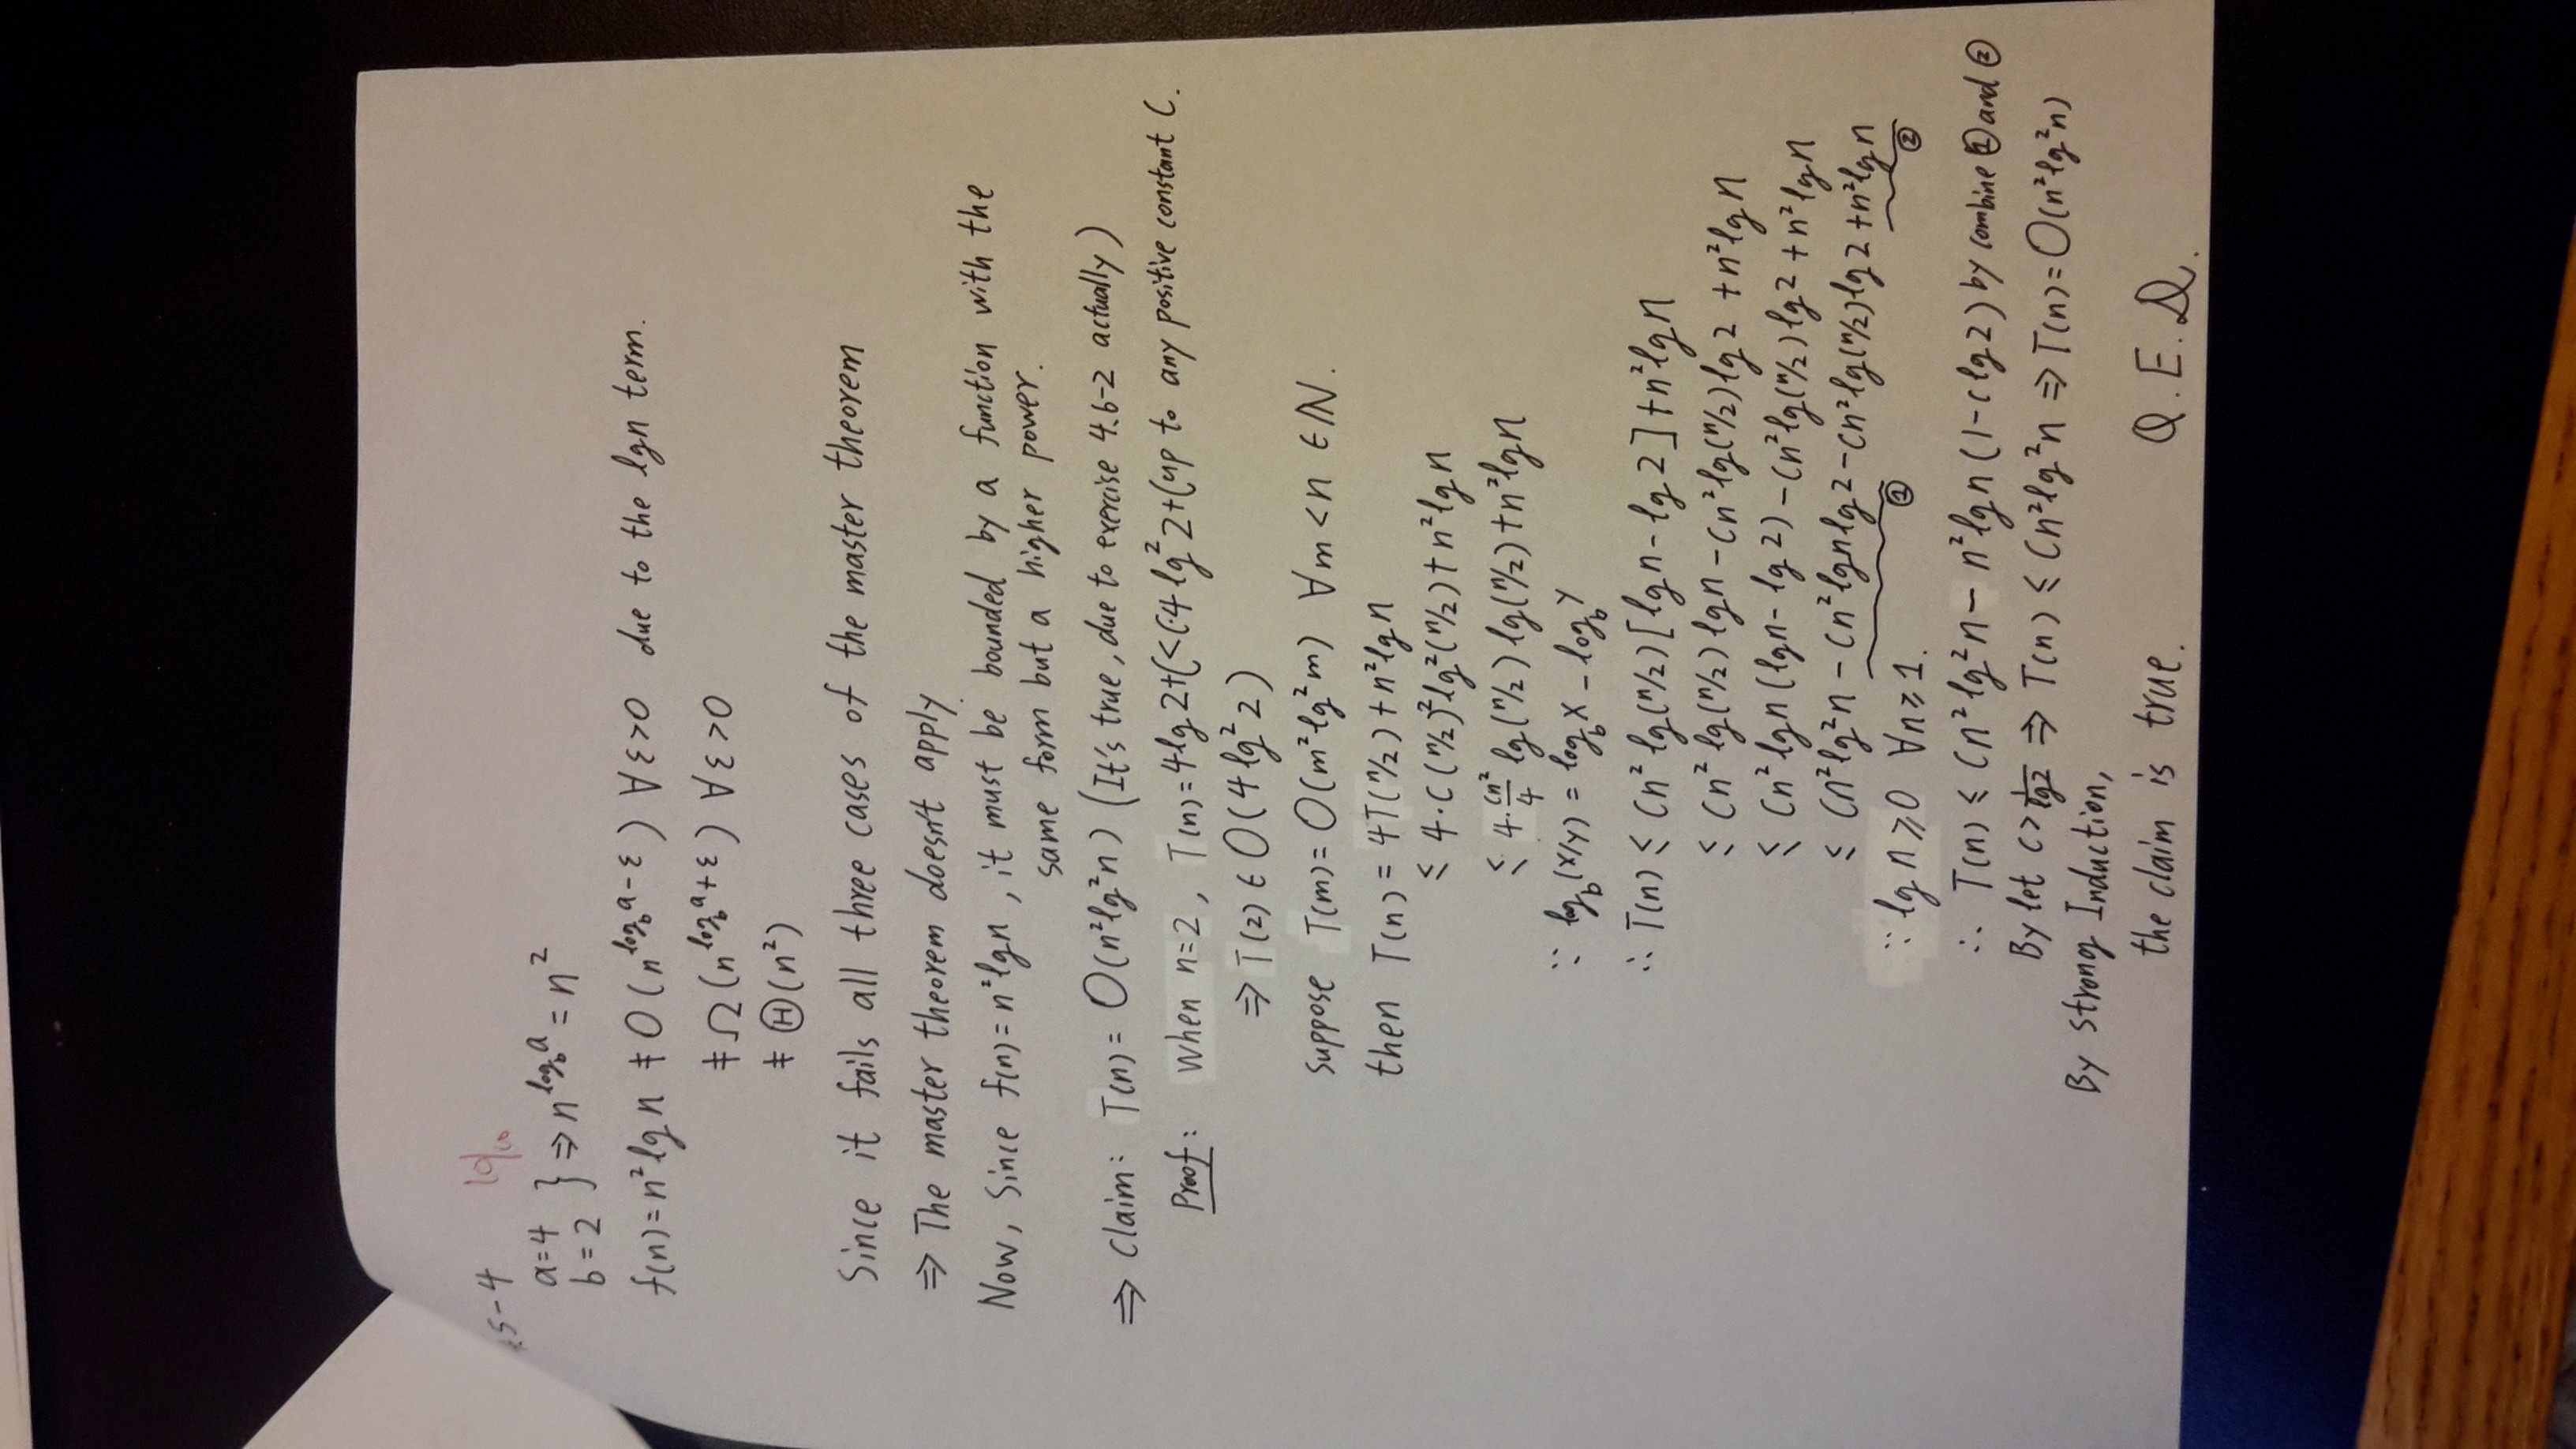 .5-4
a=4
b=2 } ⇒ n^{log_b a} = n²
f(n) = n² lg n ≠ O(n^{log_b a - ε}) ∀ε>0 due to the lgn term.
≠ Ω(n^{log_b a + ε}) ∀ε>0
≠ Θ(n²)
Since it fails all three cases of the master theorem
⇒ The master theorem doesn't apply.
Now, Since f(n) = n² lg n, it must be bounded by a function with the
same form but a higher power.
⇒ Claim: T(n) = O(n² lg² n) (It's true, due to exercise 4.6-2 actually)
Proof: When n=2, T(n) = 4 lg 2 + C < C·4 lg² 2 + C up to any positive constant C.
⇒ T(2) ∈ O(4 lg² 2)
Suppose T(m) = O(m² lg² m) ∀m<n ∈ ℕ.
then T(n) = 4T(n/2) + n² lg n
≤ 4·C(n/2)² lg²(n/2) + n² lg n
≤ 4·\frac{cn²}{4} lg(n/2) lg(n/2) + n² lg n
∵ log_b(x/y) = log_b x - log_b y
∴ T(n) ≤ Cn² lg(n/2)[lg n - lg 2] + n² lg n
≤ Cn² lg(n/2) lg n - Cn² lg(n/2) lg 2 + n² lg n
≤ Cn² lg n (lg n - lg 2) - Cn² lg(n/2) lg 2 + n² lg n
≤ Cn² lg² n - Cn² lg n lg 2 - Cn² lg(n/2) lg 2 + n² lg n
② ②
∵ lg n ≥ 0 ∀n≥1.
∴ T(n) ≤ Cn² lg² n - n² lg n (1 - C lg 2) by combine ② and ②
By let C > \frac{1}{lg 2} ⇒ T(n) ≤ Cn² lg² n ⇒ T(n) = O(n² lg² n)
By strong Induction,
the claim is true. Q.E.D.